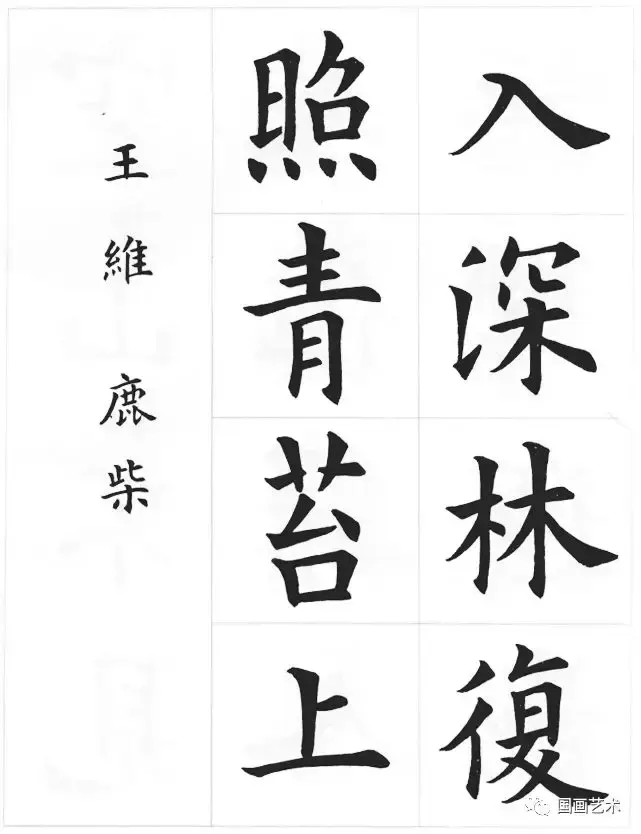 入深林復
照青苔上
王維 鹿柴
国画艺术